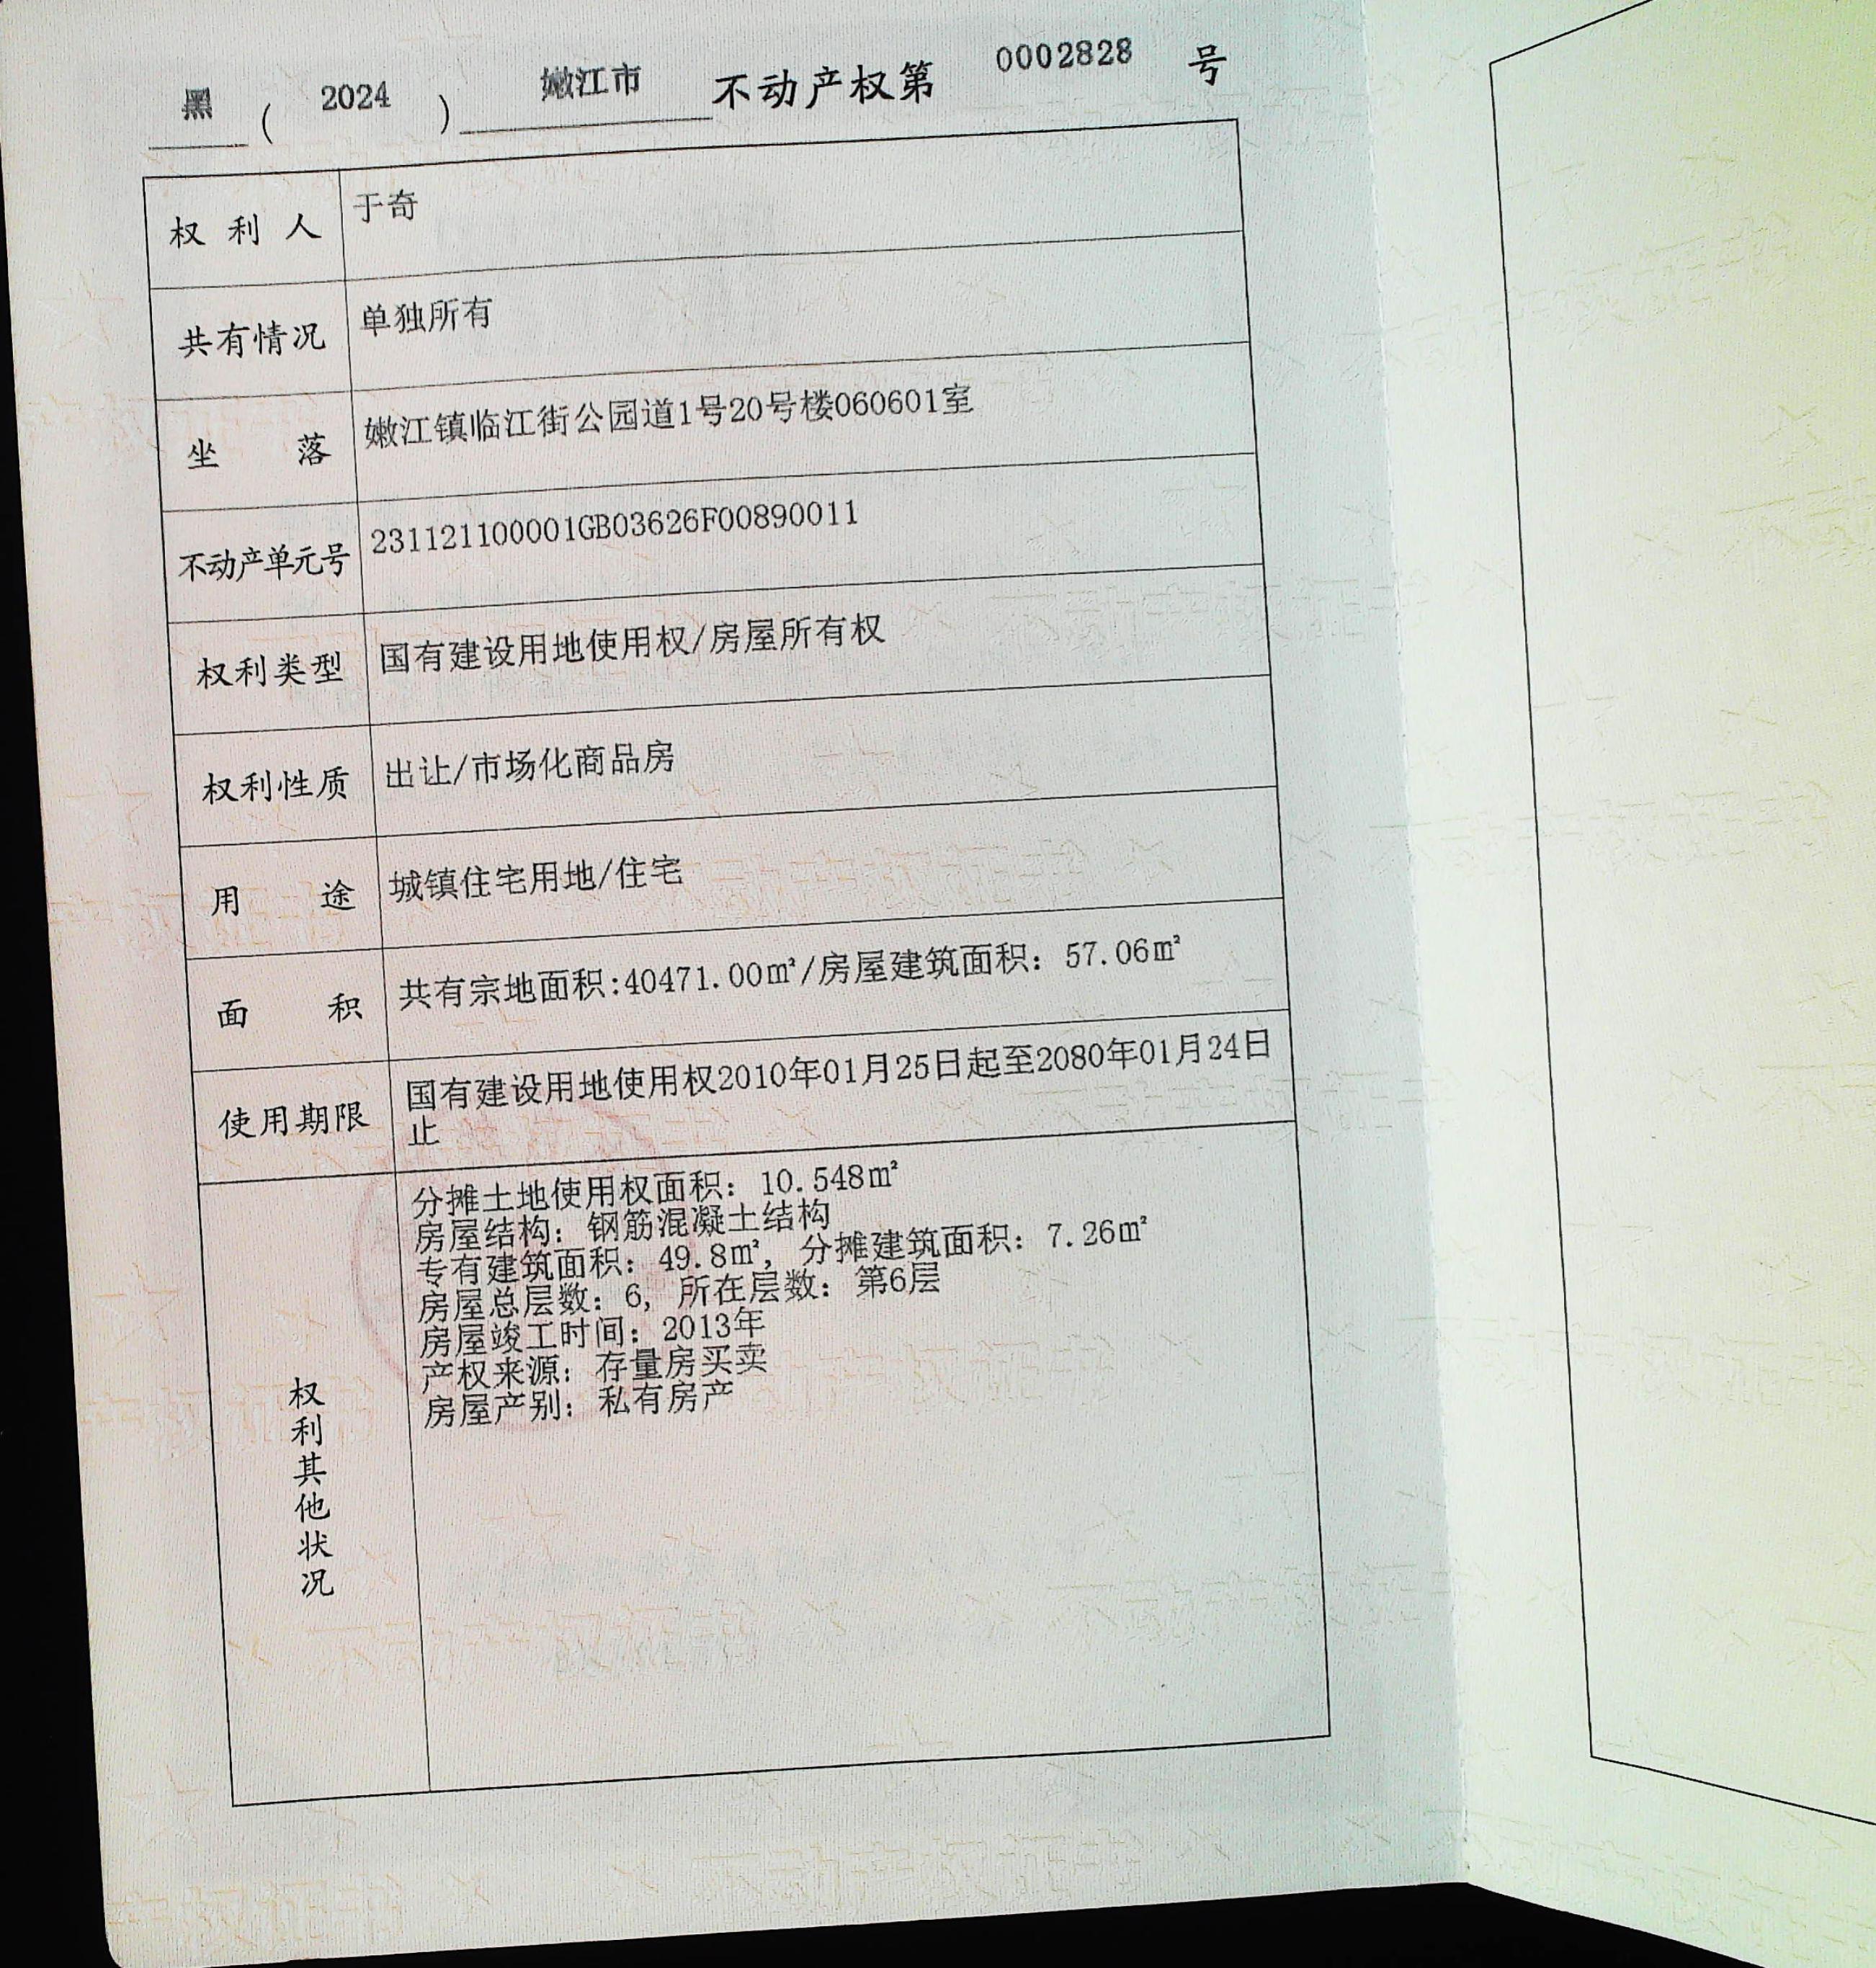 黑 ( 2024 ) 嫩江市 不动产权第 0002828 号
权利人 于奇
共有情况 单独所有
坐落 嫩江镇临江街公园道1号20号楼060601室
不动产单元号 231121100001GB03626F00890011
权利类型 国有建设用地使用权/房屋所有权
权利性质 出让/市场化商品房
用途 城镇住宅用地/住宅
面积 共有宗地面积:40471.00㎡/房屋建筑面积：57.06㎡
使用期限 国有建设用地使用权2010年01月25日起至2080年01月24日
止
权利其他状况
分摊土地使用权面积：10.548㎡
房屋结构：钢筋混凝土结构
专有建筑面积：49.8㎡，分摊建筑面积：7.26㎡
房屋总层数：6，所在层数：第6层
房屋竣工时间：2013年
产权来源：存量房买卖
房屋产别：私有房产